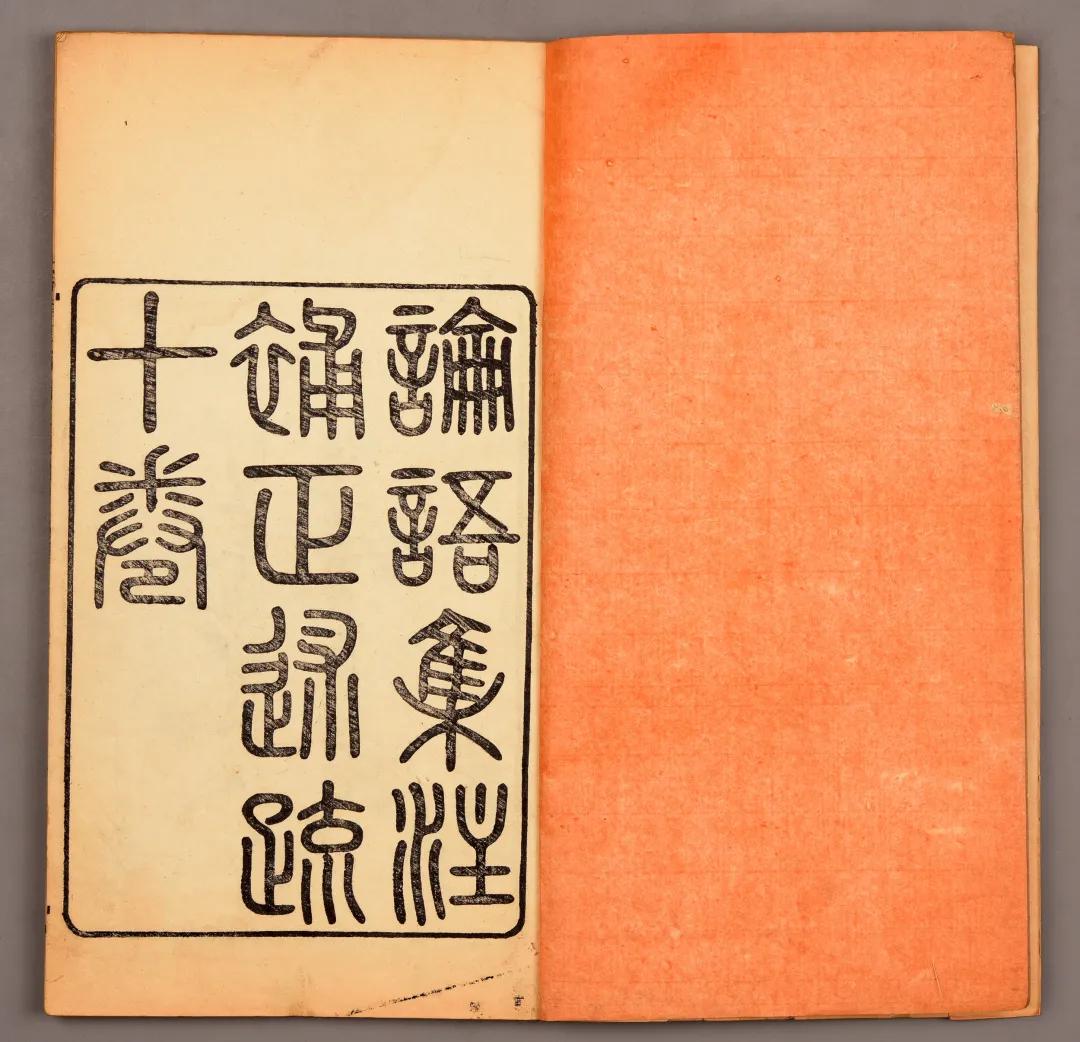 論語集注
補正述疏
十卷